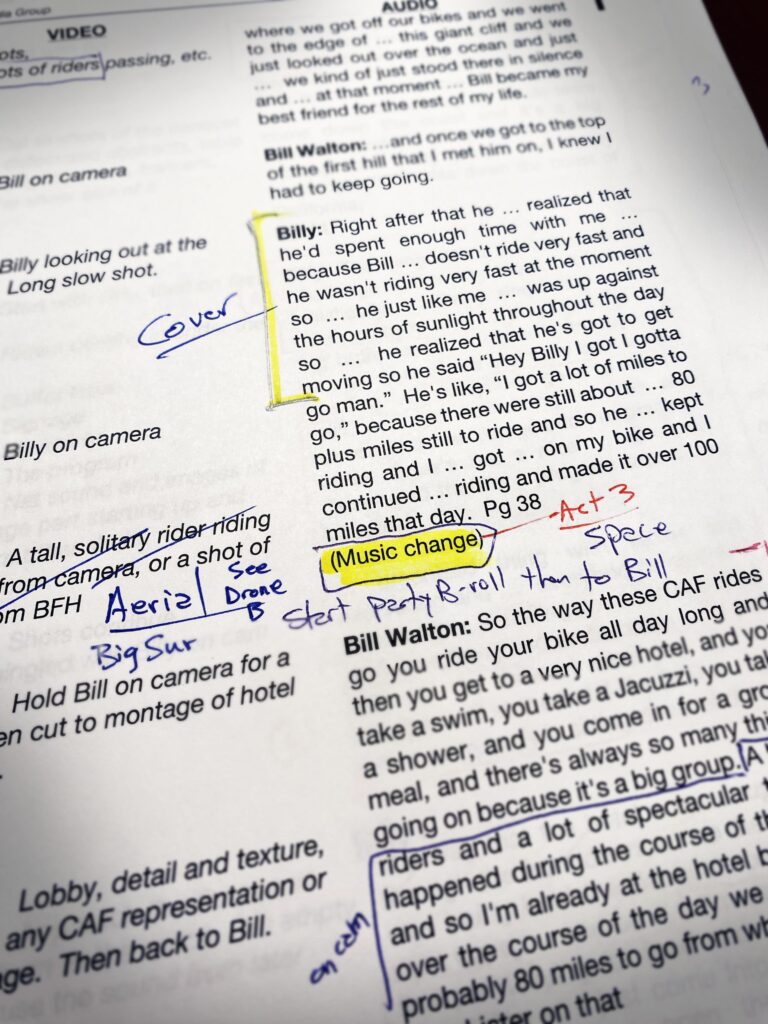 Group
VIDEO
of riders passing, etc.
Bill on camera
Billy looking out at the
Long slow shot.
Cover
Billy on camera
A tall, solitary rider riding
from camera, or a shot of
BFH
Aerial
See
Drone
B
Big Sur
Hold Bill on camera for a
cut to montage of hotel
Lobby, detail and texture,
any CAF representation or
Then back to Bill.
AUDIO
where we got off our bikes and we went
to the edge of ... this giant cliff and we
just looked out over the ocean and just
... we kind of just stood there in silence
and ... at that moment ... Bill became my
best friend for the rest of my life.
Bill Walton: ...and once we got to the top
of the first hill that I met him on, I knew I
had to keep going.
Billy: Right after that he ... realized that
he'd spent enough time with me ...
because Bill ... doesn't ride very fast and
he wasn't riding very fast at the moment
so ... he just like me ... was up against
the hours of sunlight throughout the day
so ... he realized that he's got to get
moving so he said “Hey Billy I got I gotta
go man.” He's like, “I got a lot of miles to
go,” because there were still about ... 80
plus miles still to ride and so he ... kept
riding and I ... got ... on my bike and I
continued ... riding and made it over 100
miles that day. Pg 38
(Music change)
Act 3
Space
Start party B-roll then to Bill
Bill Walton: So the way these CAF rides
go you ride your bike all day long and
then you get to a very nice hotel, and
take a swim, you take a Jacuzzi, you
a shower, and you come in for a
meal, and there's always so many
going on because it's a big group. A
riders and a lot of spectacular
happened during the course of
and so I'm already at the hotel
over the course of the day we
probably 80 miles to go from
later on that
on cam